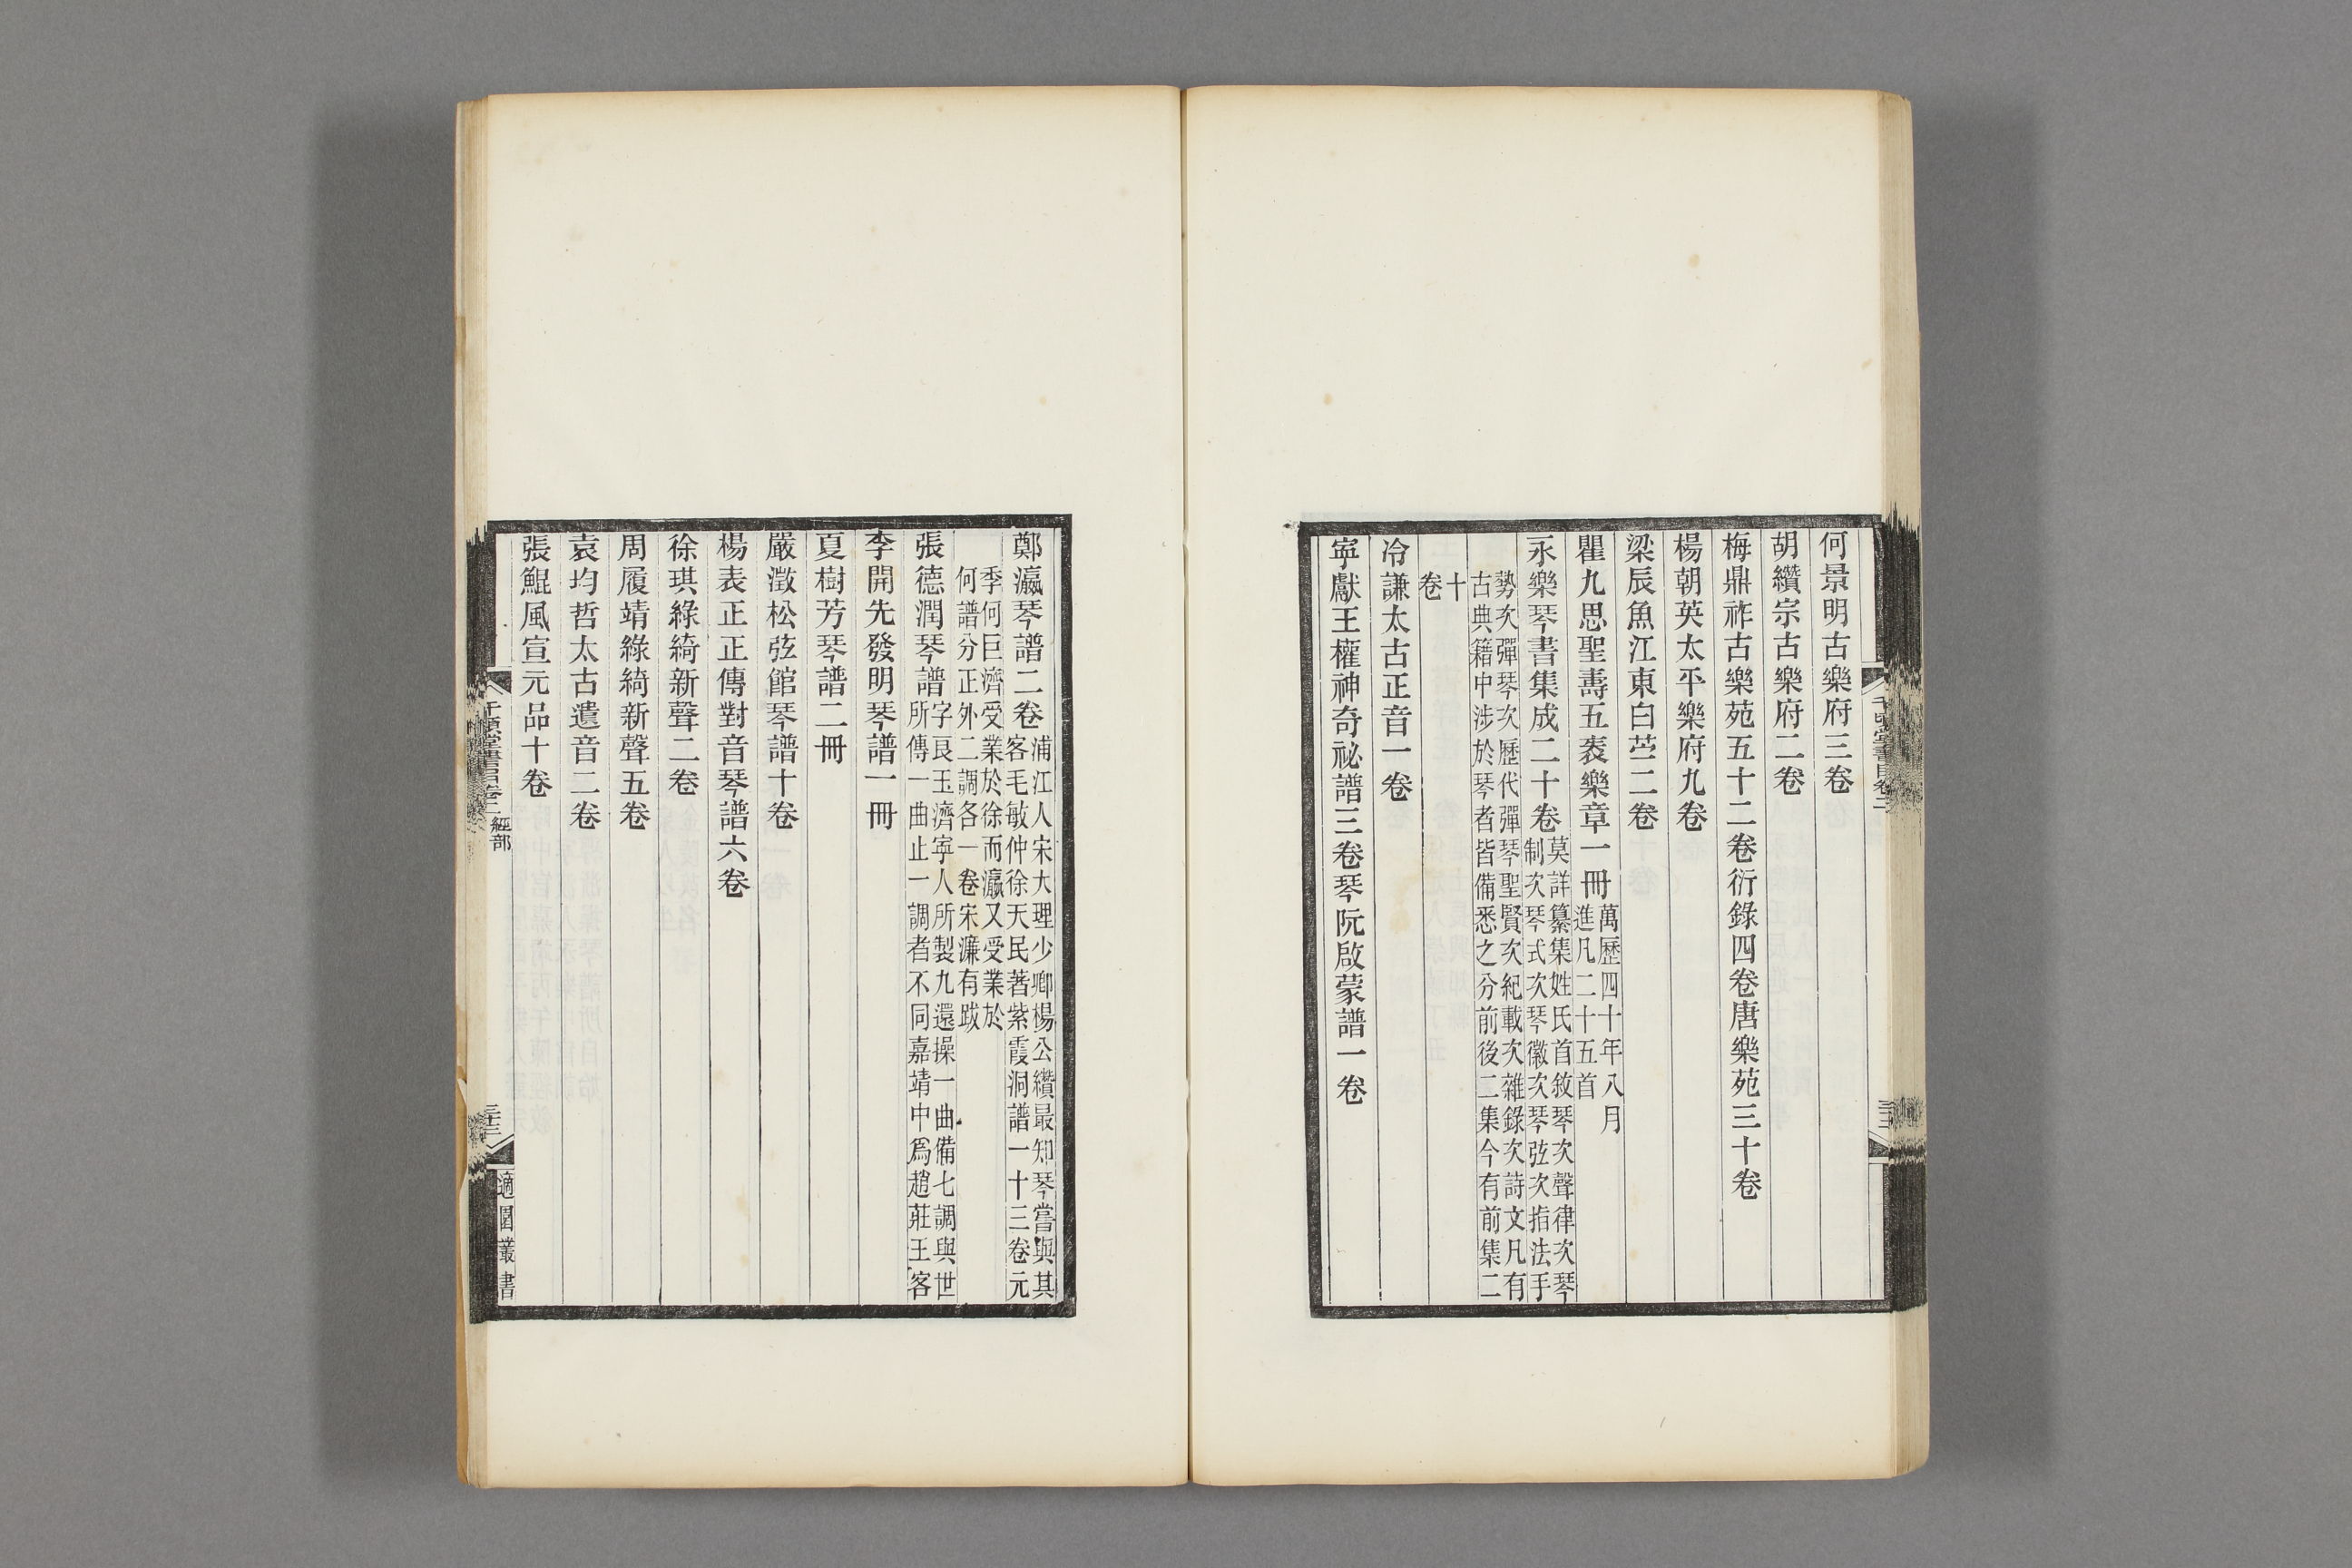 何景明古樂府三卷
胡纘宗古樂府二卷
梅鼎祚古樂苑五十二卷衍錄四卷唐樂苑三十卷
楊朝英太平樂府九卷
梁辰魚江東白苧二卷
瞿九思聖壽五袠樂章一冊
萬歷四十年八月
進凡二十五首
永樂琴書集成二十卷
莫詳纂集姓氏首敘琴次聲律次琴
制次琴式次琴徽次琴弦次指法手
勢次彈琴次歷代彈琴聖賢次紀載次雜錄次詩文凡有
古典籍中涉於琴者皆備悉之分前後二集今有前集二
十
卷
冷謙太古正音一卷
寍獻王權神奇祕譜三卷琴阮啟蒙譜一卷
鄭瀛琴譜二卷
浦江人宋大理少卿楊公纘最知琴嘗與其
客毛敏仲徐天民著紫霞洞譜一十三卷元
季何巨濟受業於徐而瀛又受業於
何譜分正外二調各一卷宋濂有跋
張德潤琴譜
字艮玉濟寧人所製九還操一曲備七調與世
所傳一曲止一調者不同嘉靖中爲趙莊王客
李開先發明琴譜一冊
夏樹芳琴譜二冊
嚴澂松弦館琴譜十卷
楊表正正傳對音琴譜六卷
徐琪綠綺新聲二卷
周履靖綠綺新聲五卷
袁均哲太古遺音二卷
張鯤風宣元品十卷
千頃堂書目卷二 經部
三十三
適園叢書